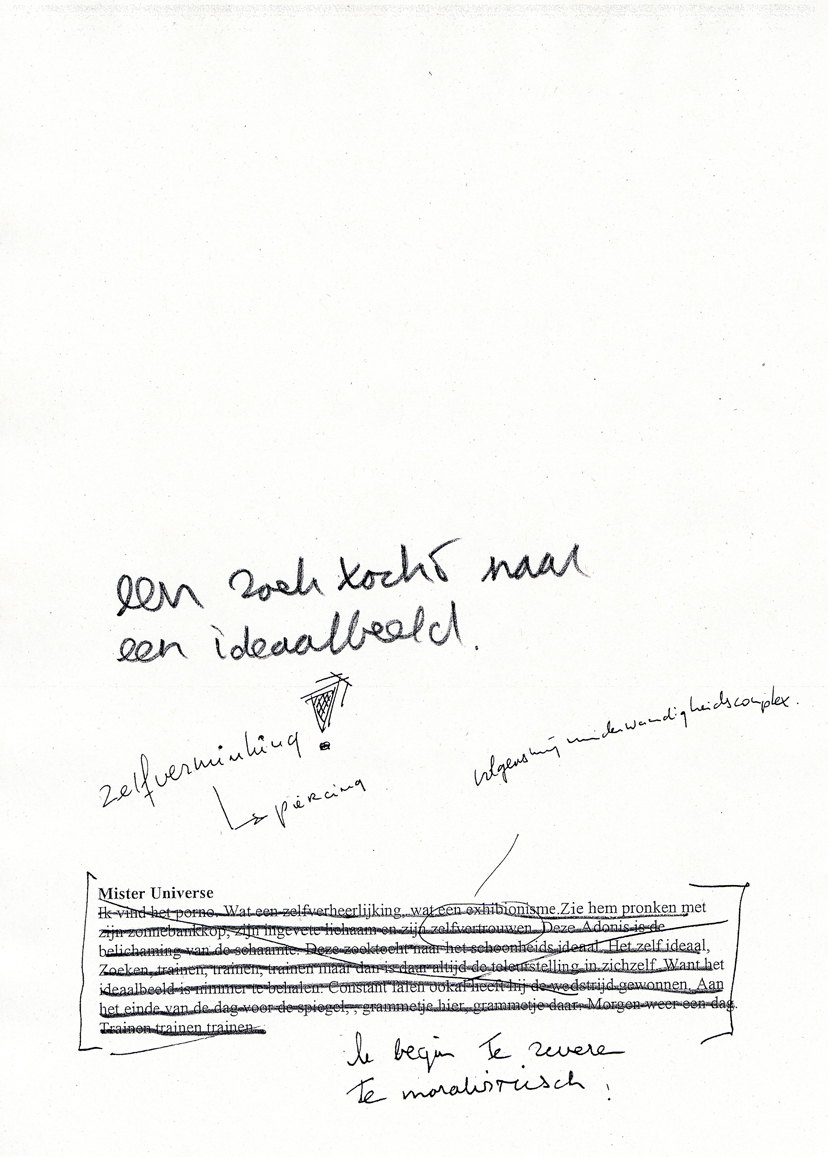 een zoektocht naar
een ideaalbeeld.
zelfverminking
piercing
volgens mij minderwaardigheidscomplex.
Mister Universe
Ik vind het porno. Wat een zelfverheerlijking, wat een exhibionisme.Zie hem pronken met
zijn zonnebankkop, zijn ingevete lichaam en zijn zelfvertrouwen. Deze Adonis is de
belichaming van de schaamte. Deze zoektocht naar het schoonheids ideaal. Het zelf ideaal,
Zoeken, trainen, trainen, trainen maar dan is daar altijd de teleurstelling in zichzelf. Want het
ideaalbeeld is nimmer te behalen. Constant falen ookal heeft hij de wedstrijd gewonnen. Aan
het einde van de dag voor de spiegel, , grammetje hier, grammetje daar. Morgen weer een dag.
Trainen trainen trainen
Ik begin te zevere
te moralistisch !